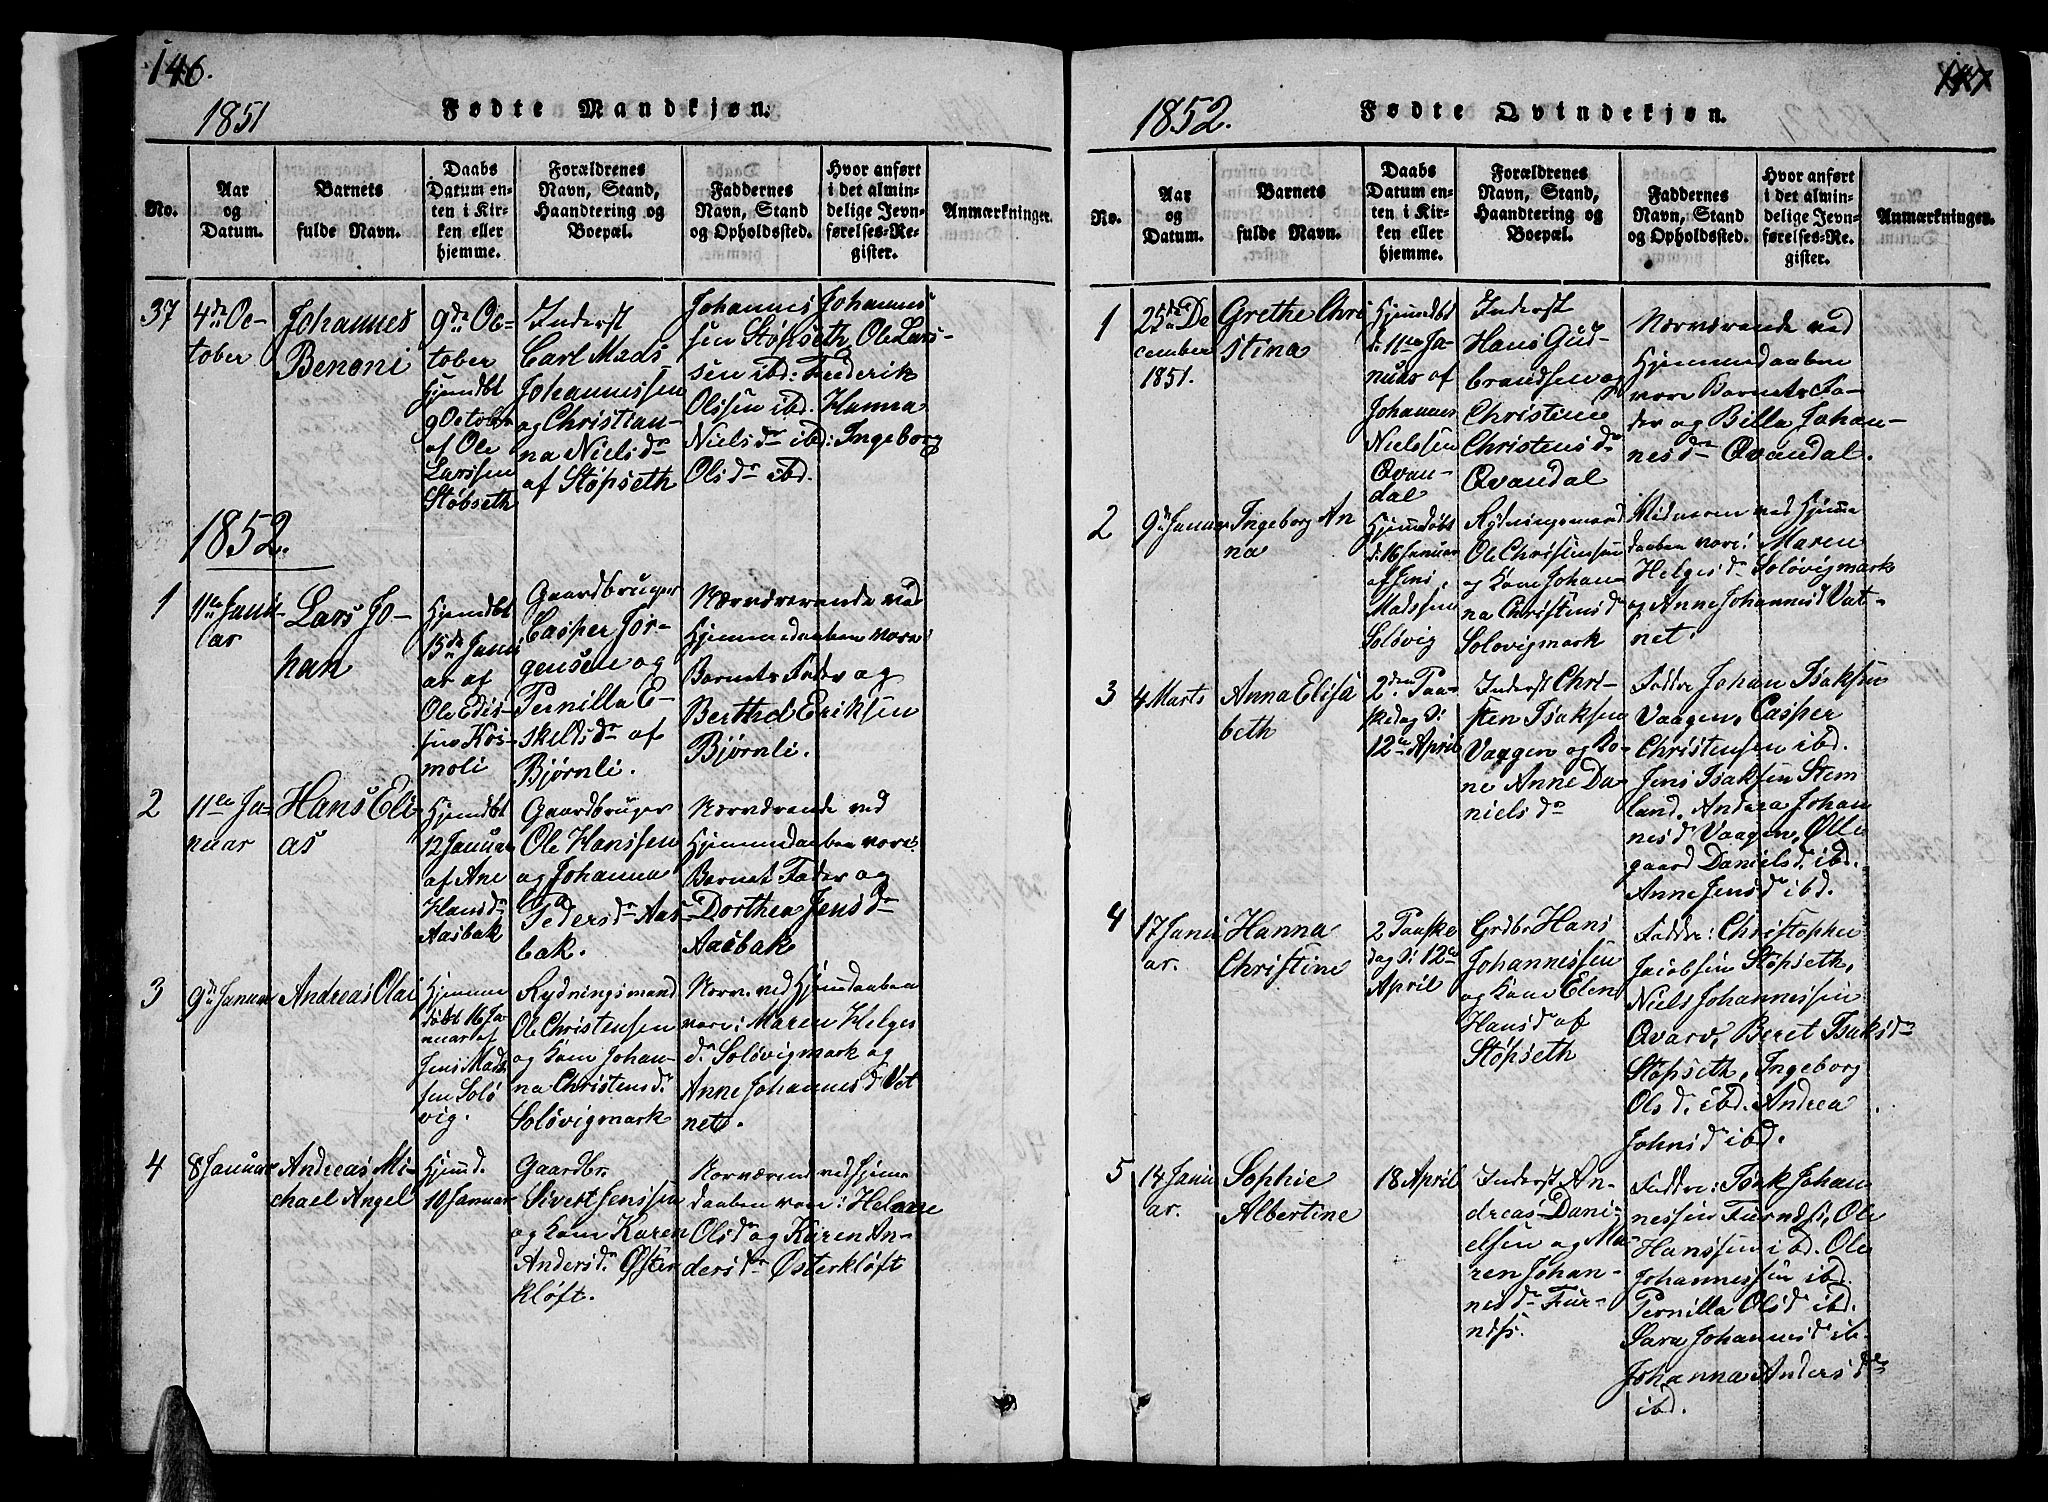 146.
1851
Fødte Mandkjøn.
No.
Aar
og
Datum.
Barnets
fulde Navn.
Daabs
Datum en-
ten i Kir-
ken eller
hjemme.
Forældrenes
Navn, Stand,
Haandtering og
Boepæl.
Faddernes
Navn, Stand
og Opholdssted.
Hvor anført
i det almin-
delige Jevn-
førelses-Re-
gister.
Anmærkninger.
37
4de Oc-
tober
Johannes
Benoni
9de Oc-
tober
hjemdbt
9 October
af Ole
Larssen
Støbseth
Inderst
Carl Mads
Johannessen
og Christian-
na Nielsdr
af Støpseth
Johannes Johannes
sen Støpseth, Ole Lars-
sen ibd: Frederik
Olssen ibd. Hanna
Nielsdr ibd: Ingeborg
Olsdr ibd.
1852.
1
11te Janu-
ar
Lars Jo-
han
Hjemdbt
15de Janu
ar af
Ole Edis-
sen Kos-
moli
Gaardbruger
Casper Jør-
gensen og
Pernilla E-
skeldsdr af
Bjørnli.
Nærværende ved
Hjemmedaaben vare:
Barnets Fader og
Berthel Eriksen
Bjørnli.
2
11te Ja-
nuar
Hans Eli-
as
Hjemdbt
12 Januar
af Ane
Hansdr
Aasbak
Gaardbruger
Ole Hanssen
og Johanna
Pedersdr Aas-
bak.
Nærværende ved
Hjemmedaaben vare:
Barnets Fader og
Dorthea Jensdr
Aasbak
3
9de Januar
Andreas Olai
Hjemme
døbt 16 Ja-
nuar af
Jens Mads
sen Solø
vig.
Rydningsmand
Ole Christensen
og Kone Johan-
na Christensd.
Soløvigmark
Nærv. ved Hjemdaaben
vare: Maren Helges
d. Soløvigmark og
Anne Johannesd Vat
net.
4
8 Januar
Andreas Mi-
chael Angel
Hjemd.
10 Januar
Gaardbr.
Sivert Jenssen
og Kone Karen
Andersd. Øster
kløft.
Nærværend ved Hjeme
daaben vare: Helene
Olsdr og Karen An-
dersdr Østerkløft
147
1852.
Fødte Qvindekjøn.
No.
Aar
og
Datum.
Barnets
fulde Navn.
Daabs
Datum en-
ten i Kir-
ken eller
hjemme.
Forældrenes
Navn, Stand,
Haandtering og
Boepæl.
Faddernes
Navn, Stand
og Opholdssted.
Hvor anført
i det almin-
delige Jevn-
førelses-Re-
gister.
Anmærkninger.
1
25de De
cember
1851.
Grethe Chri
stina
Hjemdbt
d. 11te Ja-
nuar af
Johannes
Nielsen
Qvan-
dal
Inderst
Hans Gud-
brandsen og
Christine
Christensdr
Qvandal
Nærværende ved
Hjemmedaaben
vare Barnets Fa-
der og Billa Johan-
nesdr Qvandal.
2
9de Januar
Ingeborg An
na
Hjemdøbt
d. 16 Januar
af Jens
Madssen
Soløvig
Rydningsmand
Ole Christensen
og Kone Johan-
na Christensd
Soløvigmark
Vidneren ved Hjemme
daaben vare: Maren
Helgesdr Soløvigmark
og Anne Johannesd Vat-
net.
3
4 Marts
Anna Elisa
beth
2den Paa-
skedag d:
12te April
Inderst Chri-
sten Isaksen
Vaagen og Ko-
ne Anne Da-
nielsdr
Faddre Johan Isaksen
Vaagen, Casper
Christensen ibd.
Jens Isaksen Stem
land, Andrea Johan
nesd Vaagen, Olle
gaard Danielsd. ibd.
Anne Jensd ibd.
4
17 Janu
ar.
Hanna
Christine
2 Paaske
dag d: 12te
April
Grdbr Hans
Johannessen
og Kone Elen
Hansd af
Støpseth
Faddre: Christopher
Jacobsen Støpseth,
Niels Johannessen
Qvarv, Beret Isaksdr
Støpseth, Ingeborg
Olsd. ibd. Andrea
Johnsd ibd.
5
14 Janu
ar.
Sophie
Albertine
18 April
Inderst An-
dreas Dani-
elsen og Ma-
ren Johan-
nesdr Fur-
nds.
Faddre: Isak Johan
nessen Furnds, Ole
Hanssen ibd. Ole
Johannessen ibd.
Pernilla Olsd ibd.
Sara Johannesd ib.
Johanna Andersdr
ibd.